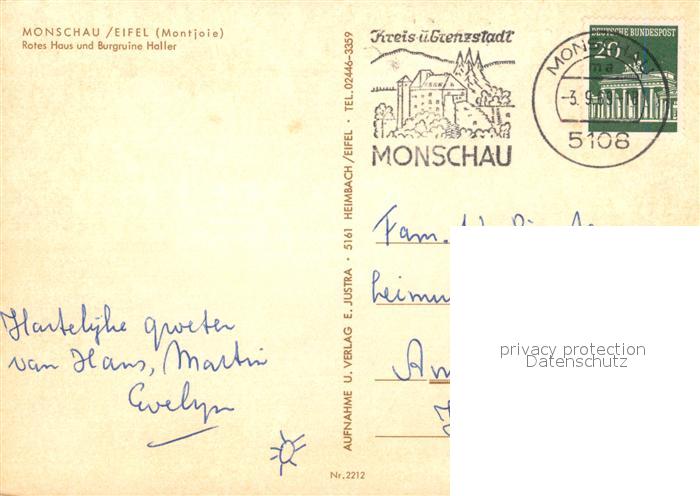 MONSCHAU /EIFEL (Montjoie)
Rotes Haus und Burgruine Haller
Kreis u. Grenzstadt
MONSCHAU
DEUTSCHE BUNDESPOST
20
MONSCHAU
ma
-3.9.69
5108
AUFNAHME U. VERLAG E. JUSTRA · 5161 HEIMBACH/EIFEL · TEL. 02446-3359
Fam.
privacy protection
Datenschutz
Hartelijke groeten
van Hans, Martin
Evelyn
Nr. 2212